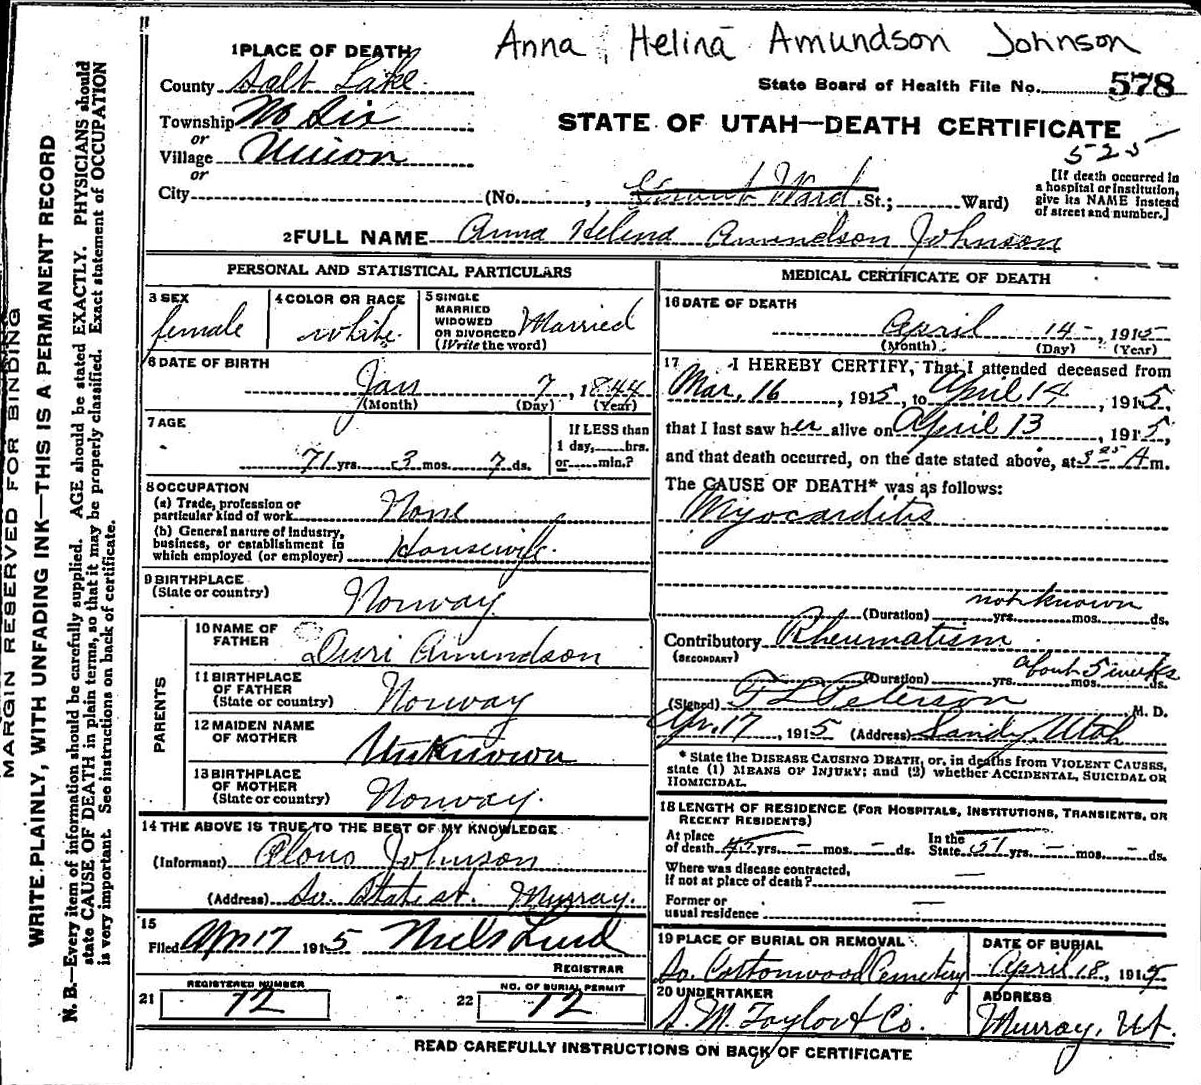 Anna Helina Amundson Johnson
1 PLACE OF DEATH
County Salt Lake
State Board of Health File No. 578
Township No Six
or
Village Union
or
STATE OF UTAH—DEATH CERTIFICATE
525
City (No. , Ward St.; Ward)
[If death occurred in
a hospital or institution,
give its NAME instead
of street and number.]
2 FULL NAME Anna Helena Amundson Johnson
PERSONAL AND STATISTICAL PARTICULARS
3 SEX
female
4 COLOR OR RACE
white
5 SINGLE
MARRIED
WIDOWED
OR DIVORCED
(Write the word)
Married
6 DATE OF BIRTH
Jan 7, 1844
(Month) (Day) (Year)
7 AGE
71 yrs. 3 mos. 7 ds.
If LESS than
1 day, hrs.
or min.?
8 OCCUPATION
(a) Trade, profession or
particular kind of work None
(b) General nature of industry,
business, or establishment in
which employed (or employer) Housewife
9 BIRTHPLACE
(State or country) Norway
PARENTS
10 NAME OF
FATHER Amundson
11 BIRTHPLACE
OF FATHER
(State or country) Norway
12 MAIDEN NAME
OF MOTHER Unknown
13 BIRTHPLACE
OF MOTHER
(State or country) Norway.
14 THE ABOVE IS TRUE TO THE BEST OF MY KNOWLEDGE
(Informant) Johnson
(Address) So. State st. Murray.
15
Filed Apr 17 1915 Niels Lind
REGISTRAR
21 REGISTERED NUMBER
72
22 NO. OF BURIAL PERMIT
72
MEDICAL CERTIFICATE OF DEATH
16 DATE OF DEATH
April 14, 1915
(Month) (Day) (Year)
17 I HEREBY CERTIFY, That I attended deceased from
Mar. 16, 1915, to April 14, 1915,
that I last saw her alive on April 13, 1915,
and that death occurred, on the date stated above, at 3 25 A m.
The CAUSE OF DEATH* was as follows:
Myocarditis
(Duration) yrs. mos. ds.
not known
Contributory Rheumatism
(SECONDARY)
(Duration) yrs. mos. ds.
about 5 weeks
(Signed) F L Peterson M. D.
Apr. 17, 1915 (Address) Sandy, Utah
* State the DISEASE CAUSING DEATH, or, in deaths from VIOLENT CAUSES,
state (1) MEANS OF INJURY; and (2) whether ACCIDENTAL, SUICIDAL OR
HOMICIDAL.
18 LENGTH OF RESIDENCE (FOR HOSPITALS, INSTITUTIONS, TRANSIENTS, OR
RECENT RESIDENTS)
At place
of death yrs. – mos. – ds.
In the
State 51 yrs. – mos. – ds.
Where was disease contracted,
if not at place of death? —
Former or
usual residence —
19 PLACE OF BURIAL OR REMOVAL
So. Cottonwood Cemetery
DATE OF BURIAL
April 18, 1915
20 UNDERTAKER
S. M. Taylor & Co.
ADDRESS
Murray, Ut.
READ CAREFULLY INSTRUCTIONS ON BACK OF CERTIFICATE
MARGIN RESERVED FOR BINDING
WRITE PLAINLY, WITH UNFADING INK—THIS IS A PERMANENT RECORD
N. B.—Every item of information should be carefully supplied. AGE should be stated EXACTLY. PHYSICIANS should
state CAUSE OF DEATH in plain terms, so that it may be properly classified. Exact statement of OCCUPATION
is very important. See instructions on back of certificate.